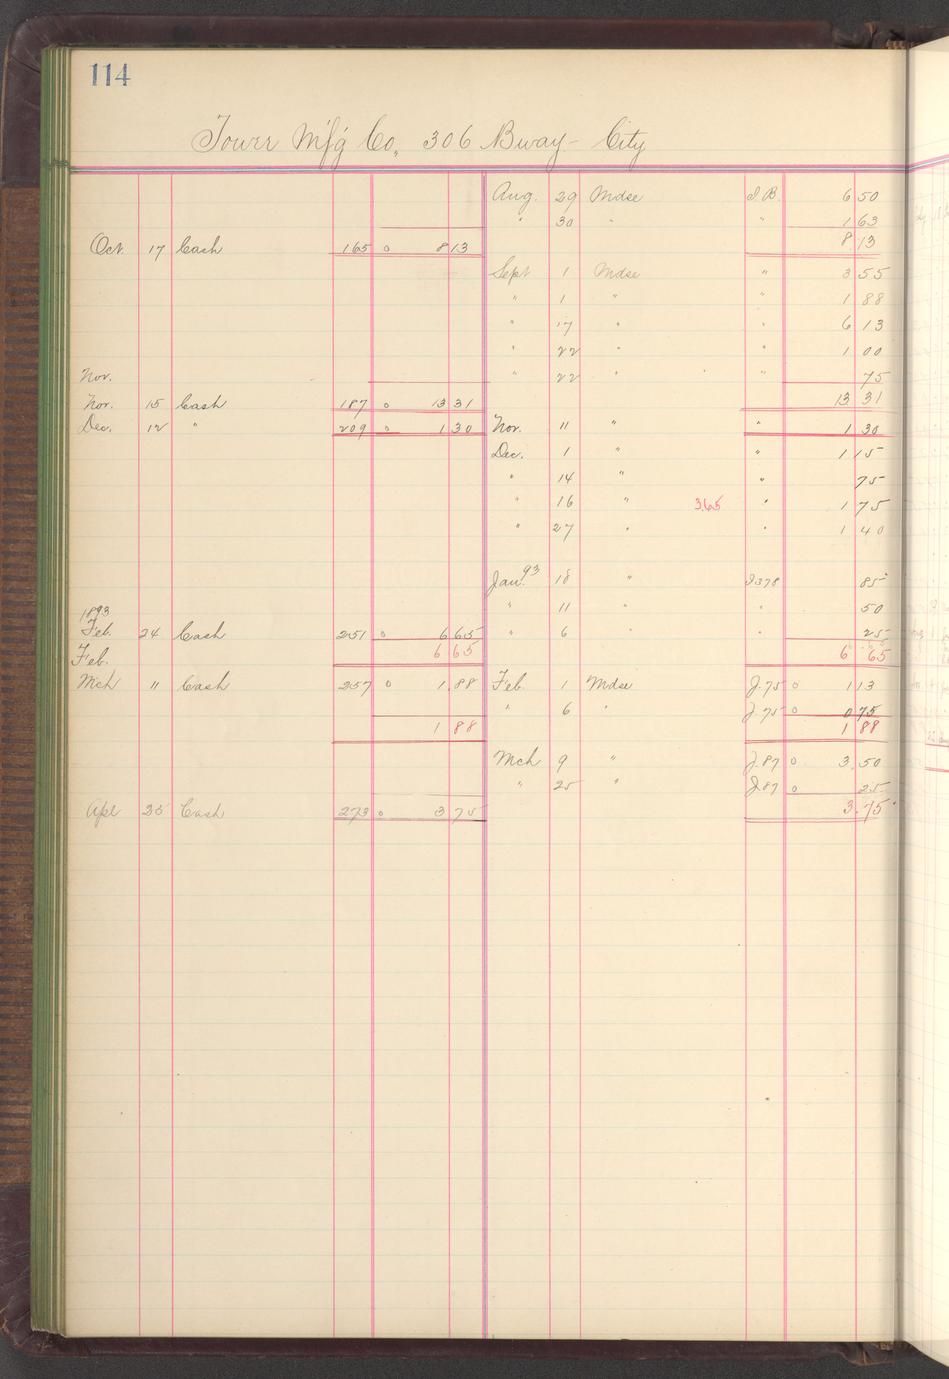 114
Tower M'f'g Co, 306 Bway - City
Aug. 29 Mdse I.B. 6 50
" 30 " " 1 63
Oct. 17 Cash 165 o 8 13 8 13
Sept 1 Mdse " 3 55
" 1 " " 1 88
" 17 " " 6 13
" 22 " " 1 00
Nov. " 22 " " 75
Nov. 15 Cash 187 o 13 31 13 31
Dec. 12 " 209 o 1 30 Nov. 11 " " 1 30
Dec. 1 " " 1 15
" 14 " " 75
" 16 " 3.65 " 1 75
" 27 " " 1 40
Jan. 93 18 " J378 85
1893 " 11 " " 50
Feb. 24 Cash 251 o 6 65 " 6 " " 25
Feb. 6 65 6 65
Mch " Cash 257 o 1.88 Feb. 1 Mdse J.75 o 1 13
" 6 " J.75 o 0 75
1 88 1 88
Mch 9 " J.87 o 3.50
" 25 " J.87 o 25
Apl 25 Cash 273 o 3 75 3.75